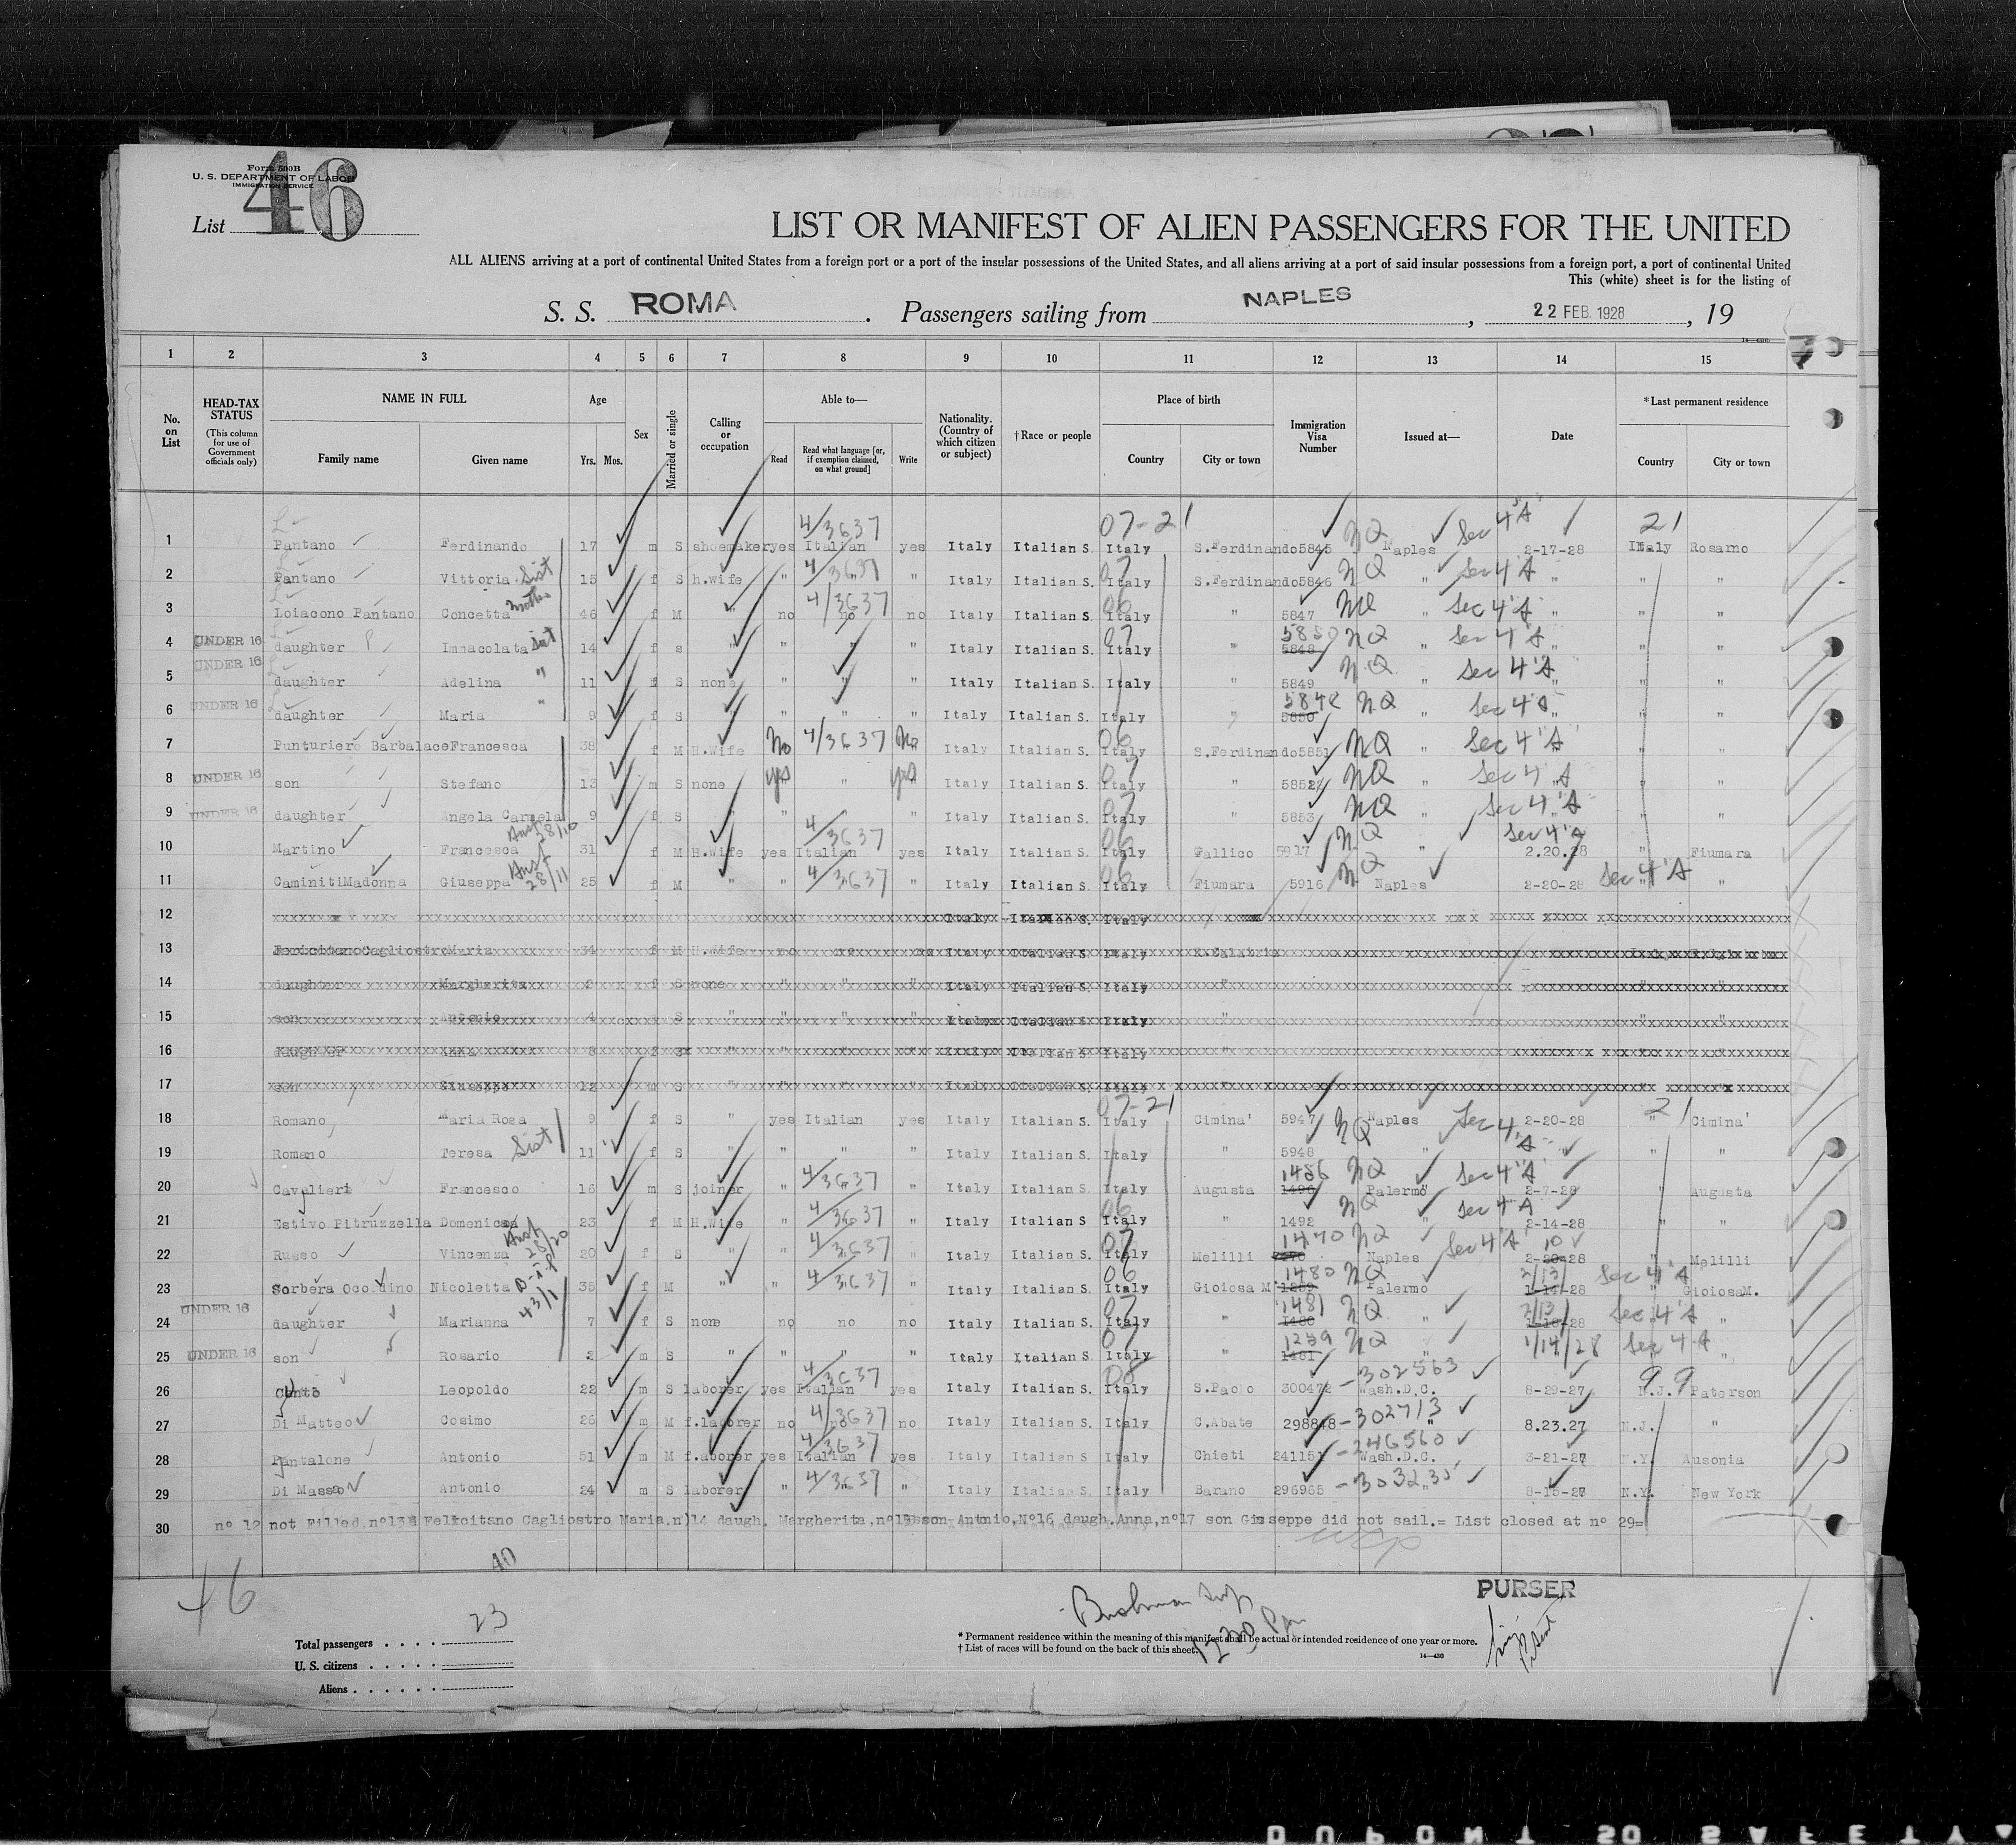 Form 500B
U. S. DEPARTMENT OF LABOR
IMMIGRATION SERVICE
46
List
LIST OR MANIFEST OF ALIEN PASSENGERS FOR THE UNITED
ALL ALIENS arriving at a port of continental United States from a foreign port or a port of the insular possessions of the United States, and all aliens arriving at a port of said insular possessions from a foreign port, a port of continental United
This (white) sheet is for the listing of
S. S. ROMA. Passengers sailing from NAPLES, 22 FEB. 1928, 19
1 2 3 4 5 6 7 8 9 10 11 12 13 14 15
No. on List
HEAD-TAX STATUS (This column for use of Government officials only)
NAME IN FULL Family name Given name
Age Yrs. Mos.
Sex
Married or single
Calling or occupation
Able to— Read Read what language [or, if exemption claimed, on what ground] Write
Nationality. (Country of which citizen or subject)
†Race or people
Place of birth Country City or town
Immigration Visa Number
Issued at—
Date
*Last permanent residence Country City or town
1 Pantano Ferdinando 17 m S shoemaker yes 4/3637 Italian yes Italy Italian S. 07-21 Italy S.Ferdinando 5845 NQ Naples Sec 4 "A" 2-17-28 21 Italy Rosarno
2 Pantano Vittoria Sist 15 f S h.wife " 4/3637 " " Italy Italian S. 07 Italy S.Ferdinando 5846 NQ " Sec 4 "A" " " "
3 Loiacono Pantano Concetta mother 46 f M " no 4/3637 no no Italy Italian S. 06 Italy " 5847 NQ " Sec 4 "A" " " "
4 UNDER 16 daughter Immacolata Sist 14 f s " " " " Italy Italian S. 07 Italy " 5848 5850 NQ " Sec 4 "A" " " "
5 UNDER 16 daughter Adelina " 11 f S none " " " Italy Italian S. Italy " 5849 NQ " Sec 4 "A" " " "
6 UNDER 16 daughter Maria " 9 f S " " " " Italy Italian S. Italy " 5850 5848 NQ " Sec 4 "A" " " "
7 Punturiero Barbalace Francesca 38 f M H.Wife No 4/3637 No Italy Italian S. 06 Italy S.Ferdinando 5851 NQ " Sec 4 "A" " " "
8 UNDER 16 son Stefano 13 m S none yes " yes Italy Italian S. 07 Italy " 5852 NQ " Sec 4 "A" " " "
9 UNDER 16 daughter Angela Carmela 9 f S " " " " Italy Italian S. 07 Italy " 5853 NQ " Sec 4 "A" " " "
10 Martino Francesca 28/10 31 f M H.Wife yes 4/3637 Italian yes Italy Italian S. 06 Italy Gallico 5917 NQ Sec 4 "A" 2.20.28 " Fiumara
11 CaminitiMadonna Giuseppa 28/11 25 f M " " 4/3637 " Italy Italian S. 06 Italy Fiumara 5916 NQ Naples 2-20-28 Sec 4 "A" " "
12 Italy Italian S. Italy
13 Cagliostro Maria 34 f M H.Wife no no no Italy Italian S. Italy R.Calabria
14 daughter Margherita f S none " " " Italy Italian S. Italy " " "
15 son Antonio 4 S " " " " Italy Italian S. Italy " " "
16 daughter Anna 8 f S " " " " Italy Italian S. Italy " " "
17 son Giuseppe 12 m S " " " " Italy Italian S. Italy " " "
18 Romano Maria Rosa 9 f S " yes Italian yes Italy Italian S. 07-21 Italy Cimina' 5947 NQ Naples Sec 4 "A" 2-20-28 21 " Cimina'
19 Romano Teresa Sist 11 f S " " " " Italy Italian S. Italy " 5948 " " " "
20 Cavalieri Francesco 16 m S joiner " 4/3637 " Italy Italian S. Italy Augusta 1486 NQ Palermo Sec 4 "A" 2-7-28 " Augusta
21 Estivo Pitruzzella Domenica 23 f M H.Wife " 4/3637 " Italy Italian S 06 Italy " 1492 NQ " Sec 4 A 2-14-28 " "
22 Russo Vincenza 28/20 20 f S " " 4/3637 " Italy Italian S. 07 Italy Melilli 1470 NQ Naples Sec 4 "A" 10 2-20-28 " Melilli
23 Sorbera Nicoletta 43/1 35 f M " " 4/3637 " Italy Italian S. 06 Italy Gioiosa M. 1480 NQ Palermo 2/13 1-14-28 Sec 4 "A" " GioiosaM.
24 UNDER 16 daughter Marianna 7 f S none no no no Italy Italian S. 07 Italy " 1480 1481 NQ " 2/13 Sec 4 "A" " "
25 UNDER 16 son Rosario 2 m S " " " " Italy Italian S. 07 Italy " 1481 NQ " 1/14/28 Sec 4 A " "
26 Leopoldo 22 m S laborer yes 4/3637 Italian yes Italy Italian S. 08 Italy S.Paolo 300472 - 302563 Wash.D.C. 8-29-27 99 N.J. Paterson
27 Di Matteo Cosimo 26 m M f.laborer no 4/3637 no no Italy Italian S. Italy C.Abate 298848 - 302713 " 8.23.27 N.J. "
28 Pantalone Antonio 51 m M f.laborer yes 4/3637 Italian yes Italy Italian S Italy Chieti 241151 - 246560 Wash.D.C. 3-21-27 N.Y. Ausonia
29 Di Massa Antonio 24 m S laborer " 4/3637 " Italy Italian S. Italy Barano 296965 " 8-15-27 N.Y. New York
30 nº 12 not Filled,nº13 Felicitano Cagliostro Maria,n)14 daugh. Margherita,nº15 son Antonio,Nº16 daugh.Anna,nº17 son Giuseppe did not sail.= List closed at nº 29=
40
46
23
Total passengers
U. S. citizens
Aliens
* Permanent residence within the meaning of this manifest shall be actual or intended residence of one year or more.
† List of races will be found on the back of this sheet.
14—430
PURSER
DUPONT SAFETY